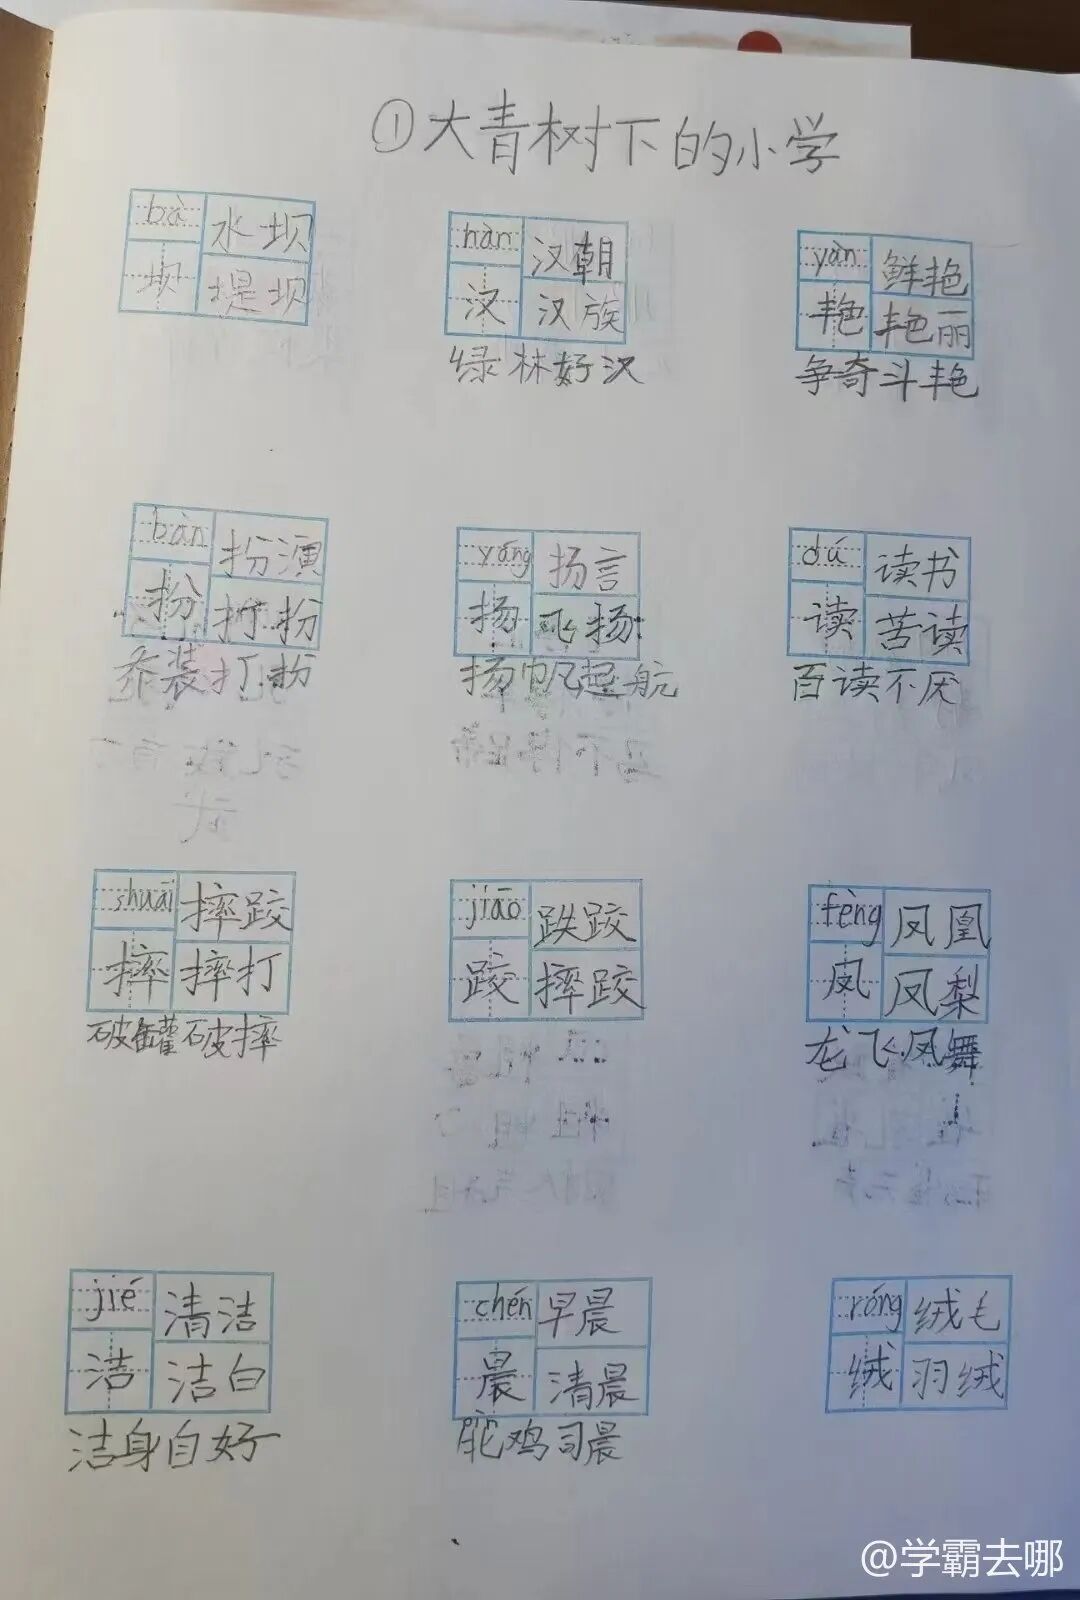 ①大青树下的小学
bà 水坝
坝 堤坝
hàn 汉朝
汉 汉族
绿林好汉
yàn 鲜艳
艳 艳丽
争奇斗艳
bàn 扮演
扮 打扮
乔装打扮
yáng 扬言
扬 飞扬
扬帆起航
dú 读书
读 苦读
百读不厌
shuāi 摔跤
摔 摔打
破罐破摔
jiāo 跌跤
跤 摔跤
fèng 凤凰
凤 凤梨
龙飞凤舞
jié 清洁
洁 洁白
洁身自好
chén 早晨
晨 清晨
鸡司晨
róng 绒毛
绒 羽绒
@学霸去哪